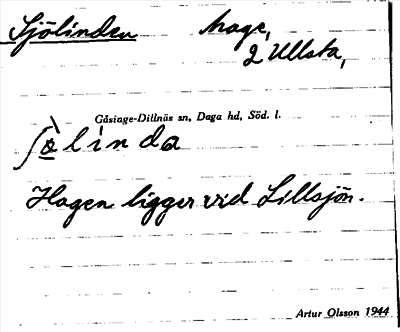 Sjölinden hage,
2 Ullsta,
Gåsinge-Dillnäs sn, Daga hd, Söd. l.
ʃò̱linda
Hagen ligger vid Lillsjön.
Artur Olsson 1944